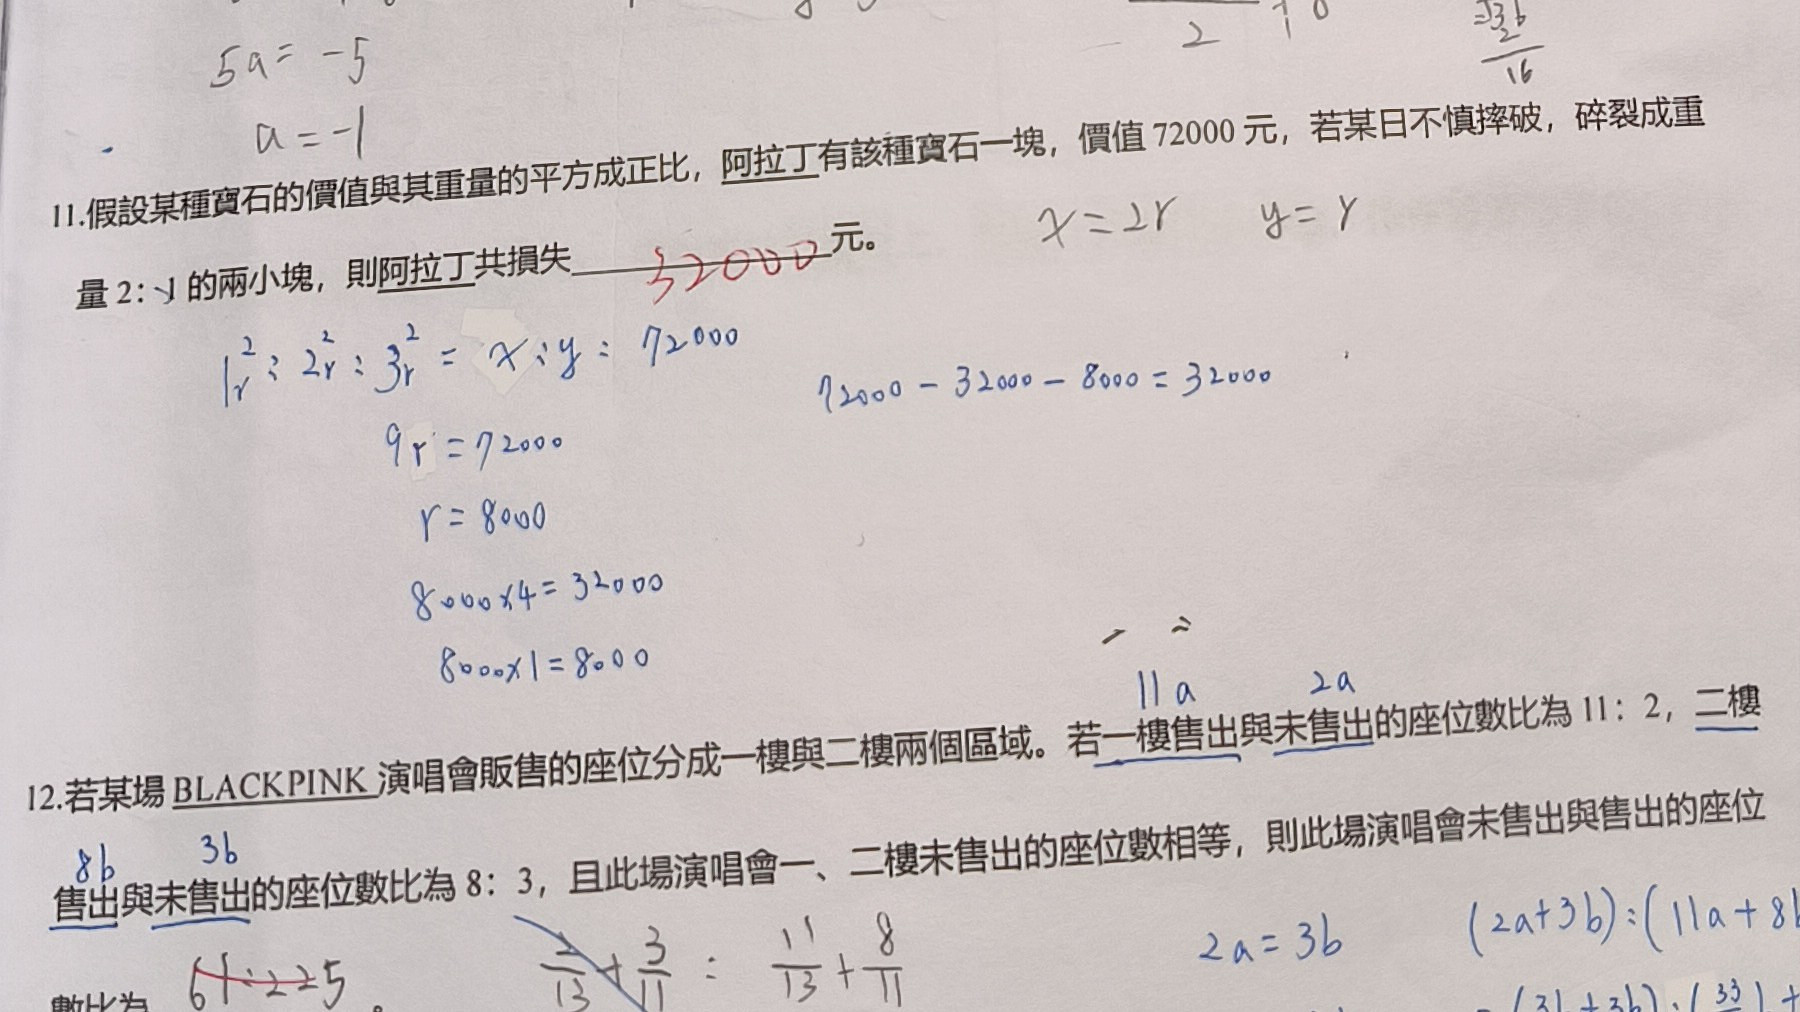 5a = -5
2
16
a = -1
11.假設某種寶石的價值與其重量的平方成正比，阿拉丁有該種寶石一塊，價值 72000 元，若某日不慎摔破，碎裂成重
x = 2r y = r
量 2：1 的兩小塊，則阿拉丁共損失 32000 元。
1²r : 2²r : 3²r = x : y : 72000
72000 - 32000 - 8000 = 32000
9r = 72000
r = 8000
8000×4 = 32000
8000×1 = 8000
11a 2a
12.若某場 BLACKPINK 演唱會販售的座位分成一樓與二樓兩個區域。若一樓售出與未售出的座位數比為 11：2，二樓
8b 3b
售出與未售出的座位數比為 8：3，且此場演唱會一、二樓未售出的座位數相等，則此場演唱會未售出與售出的座位
2a = 3b (2a+3b):(11a+8b
2/13 + 3/11 : 11/13 + 8/11
數比為 61:225 。